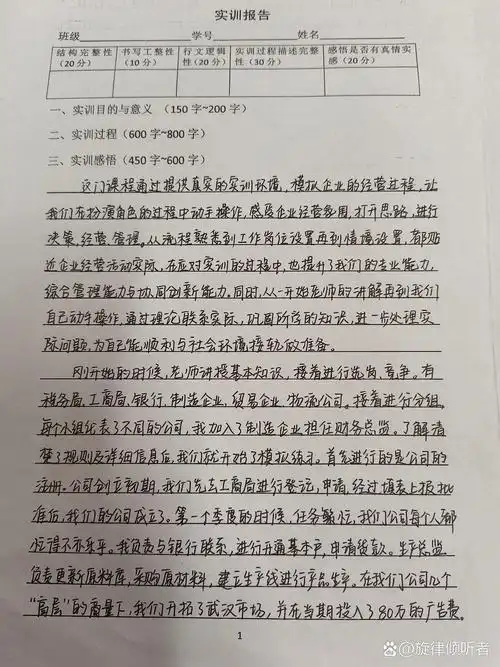 实训报告
班级 学号 姓名
结构完整性（20分） 书写工整性（10分） 行文逻辑性（20分） 实训过程描述完整性（30分） 感悟是否有真情实感（20分）
一、实训目的与意义（150字~200字）
二、实训过程（600字~800字）
三、实训感悟（450字~600字）
这门课程通过提供真实的实训环境，模拟企业的经营过程，让
我们在扮演角色的过程中动手操作，感受企业经营氛围，打开思路，进行
决策、经营、管理。从流程熟悉到工作岗位设置再到情境设置，都贴
近企业经营活动实际，在应对实训的过程中，也提升了我们的专业能力，
综合管理能力与协同创新能力。同时，从一开始老师的讲解再到我们
自己动手操作，通过理论联系实际，巩固所学的知识，进一步处理实
际问题，为自己能顺利与社会环境接轨做准备。
刚开始的时候，老师讲授基本知识，接着进行选岗、竞争。有
税务局、工商局、银行、制造企业、贸易企业、物流公司。接着进行分组。
每个小组代表了不同的公司，我加入了制造企业担任财务总监。了解清
楚了规则及详细信息后，我们就开始了模拟练习。首先进行的是公司的
注册。公司创立初期，我们先去工商局进行登记，申请，经过填表上报批
准后，我们的公司成立了。第一个季度的时候，任务繁忙，我们公司每个人都
忙得不亦乐乎。我负责与银行联系，进行开通基本户，申请贷款。生产总监
负责更新原料库，采购原材料，建立生产线进行产品生产。在我们公司几个
“高层”的商量下，我们开拓了武汉市场，并在当期投入了80万的广告费。
1
旋律倾听者